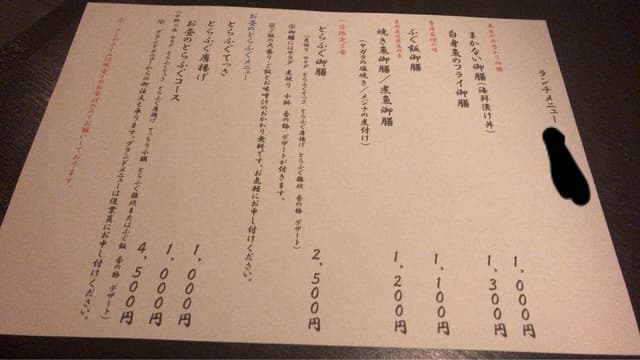 ランチメニュー
本日の日替わり御膳
まかない御膳(海鮮漬け丼) 1,000円
白身魚のフライ御膳 1,300円
ふぐ飯御膳 1,100円
焼き魚御膳/煮魚御膳 1,200円
(ヤガラの塩焼き/メンナの煮付け)
一日限定5食
とらふぐ御膳 2,500円
(煮凝り サラダ とらふぐてっさ とらふぐ唐揚げ とらふぐ雑炊 香の物 デザート)
※御膳にはサラダ 煮凝り 小鉢 香の物 デザートが付きます。
※ご飯の大盛り、ご飯とお味噌汁のおかわり無料です。お気軽にお申し付けください。
お昼のとらふぐメニュー
とらふぐてっさ 1,000円
とらふぐ唐揚げ 1,000円
お昼のとらふぐコース 4,500円
サラダ とらふぐてっさ とらふぐ唐揚げ てっちり小鍋 とらふぐ雑炊またはふぐ飯 香の物 デザート)
※ グランドメニューからの御注文も承ります。グランドメニューは従業員にお申し付けください。
※ ランチタイムは現金でのお会計のみでお願いしております。